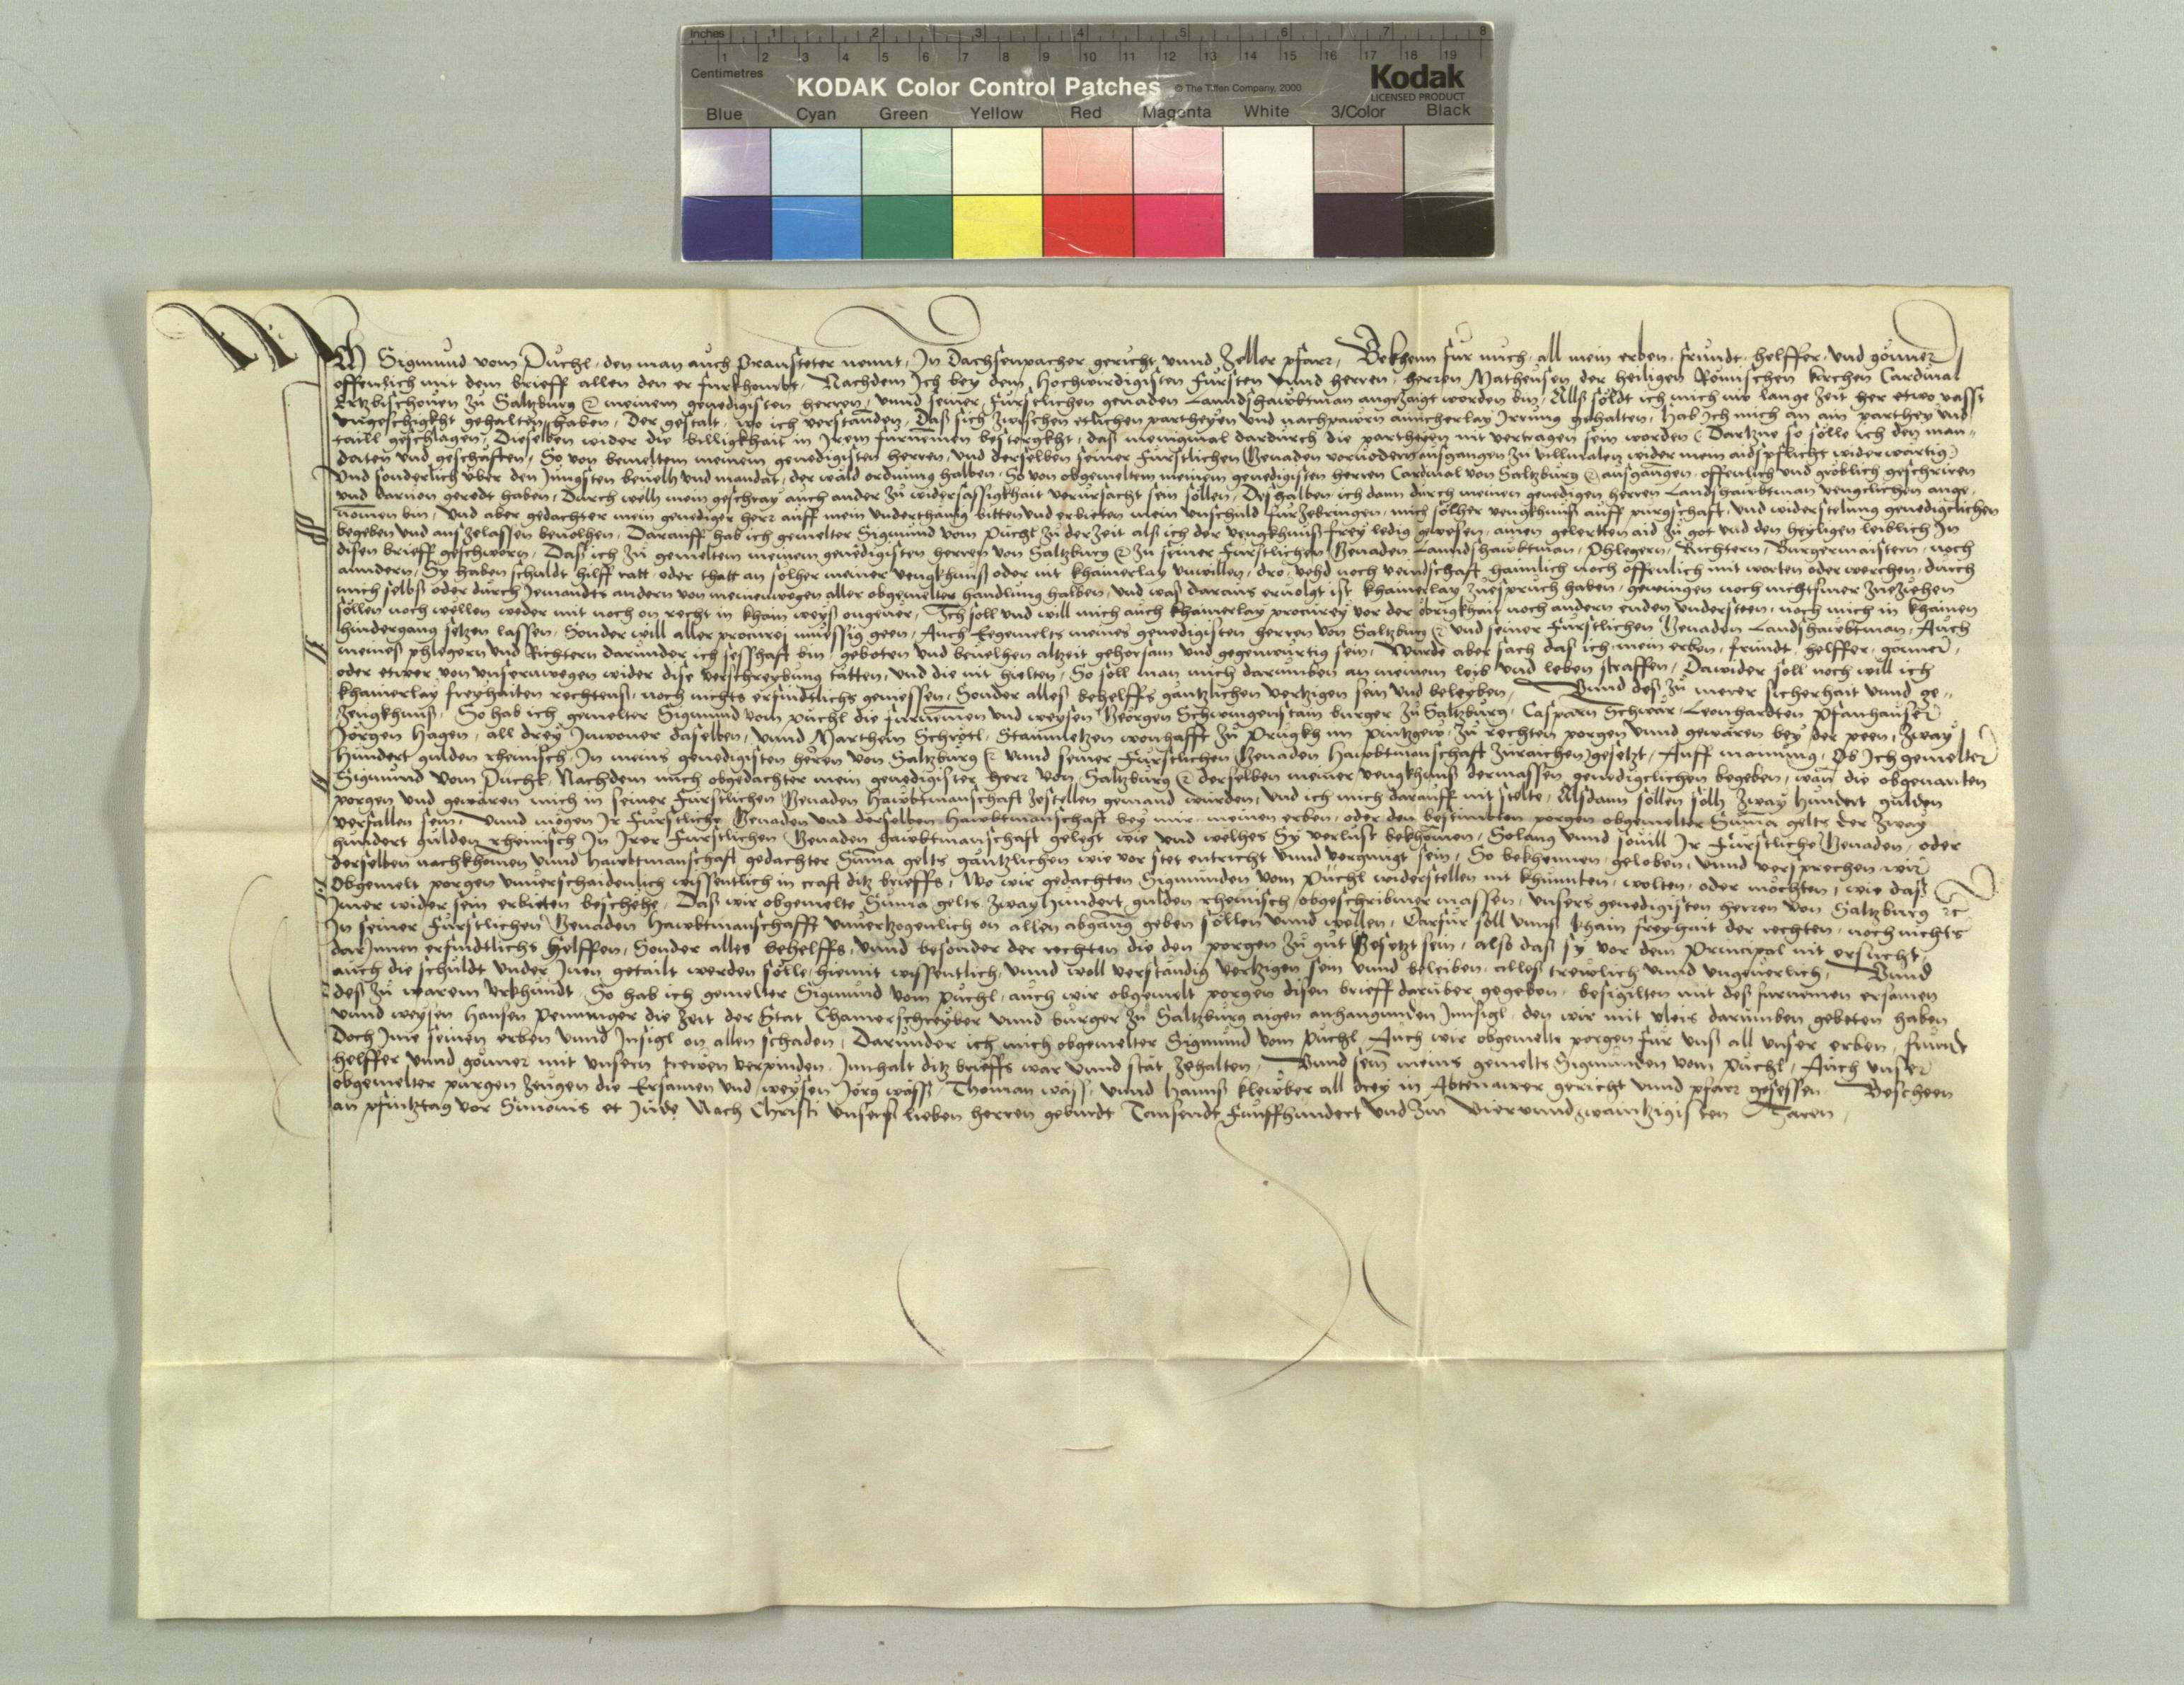 Inches 1 2 3 4 5 6 7 8
1 2 3 4 5 6 7 8 9 10 11 12 13 14 15 16 17 18 19
Centimetres
KODAK Color Control Patches © The Tiffen Company, 2000 Kodak
LICENSED PRODUCT
Blue Cyan Green Yellow Red Magenta White 3/Color Black
Ich Sigmund vom Púchl, den man auch Pransteter nennt, In Dachsenpacher gericht vnnd Zeller pfarr, Bekhenn fúr mich, all mein erben, frúndt, helffer, vnd gönner
offenlich mit dem brieff allen den er fúrkhombt, Nachdem Ich bey dem Hochwirdigisten Fúrsten vnnd herren, herren Matheusen der heiligen Römischen kirchen Cardinal
Ertzbischouen zú Saltzbúrg &c meinem genedigisten herren, vnnd seiner Fúrstlichen genaden Lanndshawbtman angezaigt worden bin, Allß söldt ich mich nw lange zeit her etwo vasst
vngeschigkht gehalten haben, Der gestalt, wo ich verstanden, Daß sich zwischen etlichen partheyen vnd nachpawrn ainicherlay Irrúng gehalten, hab Ich mich an ain parthey vnd
taill geschlagen, Dieselben wider die billigkhait in Irem fúrnemen bestergkht, das menigmal dardúrch die partheyen nit vertragen sein worden, Dartzúe so sölle ich den man,,
daten vnd geschäfften, So von bemeltem meinem genedigisten herren, vnd derselben seiner Fúrstlichen Genaden voruodern ausgangen zú villmalen wider mein aidspflicht widerwärtig,
Vnd sonderlich úber den Jungsten beuelh vnd mandat, der wald ordnúng halben, So von obgemeltem meinem genedigisten herren Cardinal von Saltzbúrg &c ausgangen, offenlich vnd gröblich geschriren
vnd daruon geredt haben, Dúrch welh mein geschray auch ander zú widersässigkhait verúrsacht sein sollen, Des halben ich dann dúrch meinen genedigen herren Landshawbtman vengclichen ange,
nomen bin, Vnd aber gedachter mein genediger herr auff mein vnderthänig bitten vnd erbieten mein vnschuld fúrzebringen, mich sölher vengkhnúß auff púrgschaft, vnd widerstelúng genedigclichen
begeben vnd auszelassen beuolhen, Darauff hab ich gemelter Sigmúnd vom Púchl zú der zeit alß ich der vengkhnúß frey ledig gewesen, ainen gelertten aid zú got vnd den heyligen leiblich In
disen brieff geschworn, Daß ich zú gemeltem meinem genedigisten herren von Saltzbúrg &c zú seiner Fúrstlichen Genaden Lanndshawbtman, Phlegern, Richtern, Búrgermaistern, noch
anndern, Sy haben schuldt hilff ratt oder thatt an sölher meiner vengkhnúß oder nit khainerlay vnwillen, dro, vehd noch veindschaft haimlich noch öffenlich mit worten oder werchen, dúrch
mich selbs oder dúrch Jemandts andern von meinenwegen aller obgemelter handlúng halben, vnd waß daraus eruolgt ist khainerlay zúesprúch haben, gewingen noch nichtsmer zúeziehen
söllen noch wöllen weder mit noch on recht in khain weyß ongeuer, Ich soll vnd will mich aúch khainerlay procúrey vor der öbrigkhait noch andern enden vndersteen, noch mich in khainen
hindergang setzen lassen, Sonder will aller procúrej múessig geen, Aúch Eegemelts meines genedigisten herren von Saltzbúrg &c vnd seiner Fúrstlichen Genaden Landshawbtman, Auch
meines phlegern vnd Richtern darúnder ich sesshaft bin, geboten vnd beuelhen altzeit gehorsam vnd gegenwúrtig sein, Wúrde aber sach das ich, mein erben, frúndt, helffer, gönner,
oder etwer von vnsernwegen wider dise verschreybúng tätten, vnd die nit hielten, So soll man mich darúmben an meinem leib vnd leben straffen, Dawider soll noch will ich
khainerlay freyhaiten rechtens, noch nichts erfindtlichs geniessen, Sonder alles behelffs gäntzlichen vertzigen sein vnd beleyben, Vnnd des zú merer sicherhait vnnd ge,,
zeúgkhnúß, So hab ich gemelter Sigmúnd vom púchl die fúrnemen vnd weysen Geörgen Schwingenstain búrger zú Saltzbúrg, Casparn Schwär, Leonhardten Pfanhaúser
Jörgen Hagen, all drey Inwoner daselben, vnnd Marthein Schrötl, Staúmletzen wonhafft zú Prúgkh im Pintzgew, zú rechten porgen vnnd gewären bey der peen, zway
Húndert gulden rheinisch, In meins genedigisten herren von Saltzbúrg &c vnnd seiner Fúrstlichen Genaden Hawbtmanschaft zúraichen gesetzt, Auff mainúng, Ob Ich gemelter
Sigmúnd vom Púchl, Nachdem mich obgedachter mein genedigister herr von Saltzbúrg &c derselben meiner vengkhnúß dermassen genedigclichen begeben, wan die obgenanten
porgen vnd gewären mich in seiner Fúrstlichen Genaden Hawbtmanschaft zestellen gemand wúrden, vnd ich mich darauff nit stelte, Alsdann söllen sölh zway húndert gúlden
verfallen sein, Vnnd mögen Ir Fúrstliche Genaden vnd derselben Hawbtmanschaft bey mir, meinen erben, oder den bestimbten porgen obgemelter Súma gelts der zway
húndert gúlden rheinisch In Irer Fúrstlichen Genaden Hawbtmanschaft gelegt wie vnd welhes Sy verlúst bekhomen, Solang vnnd souill Ir Fúrstliche Genaden, oder
derselben nachkhomen vnnd Hawbtmanschaft gedachter Súma gelts gäntzlichen wie vor stet entricht vnnd vergnúgt sein, So bekhennen, geloben, vnnd versprechen wir
Obgemelt porgen vnuerschaidenlich wissentlich in craft ditz brieffs, Wo wir gedachten Sigmúnden vom Púchl widerstellen nit khúnnten, wolten, oder möchten, wie daß
Imer wider sein erbieten beschehe, Das wir obgemelte Súma gelts zway húndert gulden rheinisch obgeschribner massen, vnsers genedigisten herren von Saltzbúrg &c
In seiner Fúrstlichen Genaden Hawbtmanschafft vnuertzogenlich on allen abgang geben söllen vnnd wöllen, Darfúr soll vnns khain freyhait der rechten, noch nichts
darInnen erfindtlichs helffen, Sonder alles behelffs, vnnd besonder der rechten die den porgen zú gút Gesetzt sein, also das sy vor dem Principal nit ersúcht,
auch die schuldt vnder Inen getailt werden sölle, hiemit wissentlich, vnnd woll verständig vertzigen sein vnnd beleiben, alles trewlich vnnd vngeuerlich, Vnnd
des zú warem vrkhúndt, So hab ich gemelter Sigmúnd vom Púchl, aúch wir obgemelt porgen disen brieff darúber gegeben, besigilten mit des fúrnemen ersamen
vnnd weysen Hansen Penninger die zeit der Stat Chamerschreyber vnnd búrger zú Saltzbúrg aigen anhangúnden Innsigl, den wir mit vleis darúmben gebeten haben
Doch Ime seinen erben vnnd Insigl on allen schaden, Darúnder ich mich obgemelter Sigmúnd vom Púchl, Aúch wir obgemelte porgen fúr vnß all vnser erben, frúndt
helffer vnnd gönner mit vnsern trewen verpinden, Innhalt ditz brieffs war vnnd stät zehalten, Vnnd sein meins gemelts Sigmúnden vom Púchl, Aúch vnser
obgemelter púrgen zeúgen die Ersamen vnd weysen Jörg wäss, Thoman wäss, vnnd Hanns klewber all drey in Abtenawer gericht vnnd pfarr gesessen, Bescheen
an pfintztag vor Simonis et Júde Nach Christi vnsers lieben herren gebúrdt Taúsendt Fúnffhúndert vnd Im viervnndzwaintzigisten Jaren,